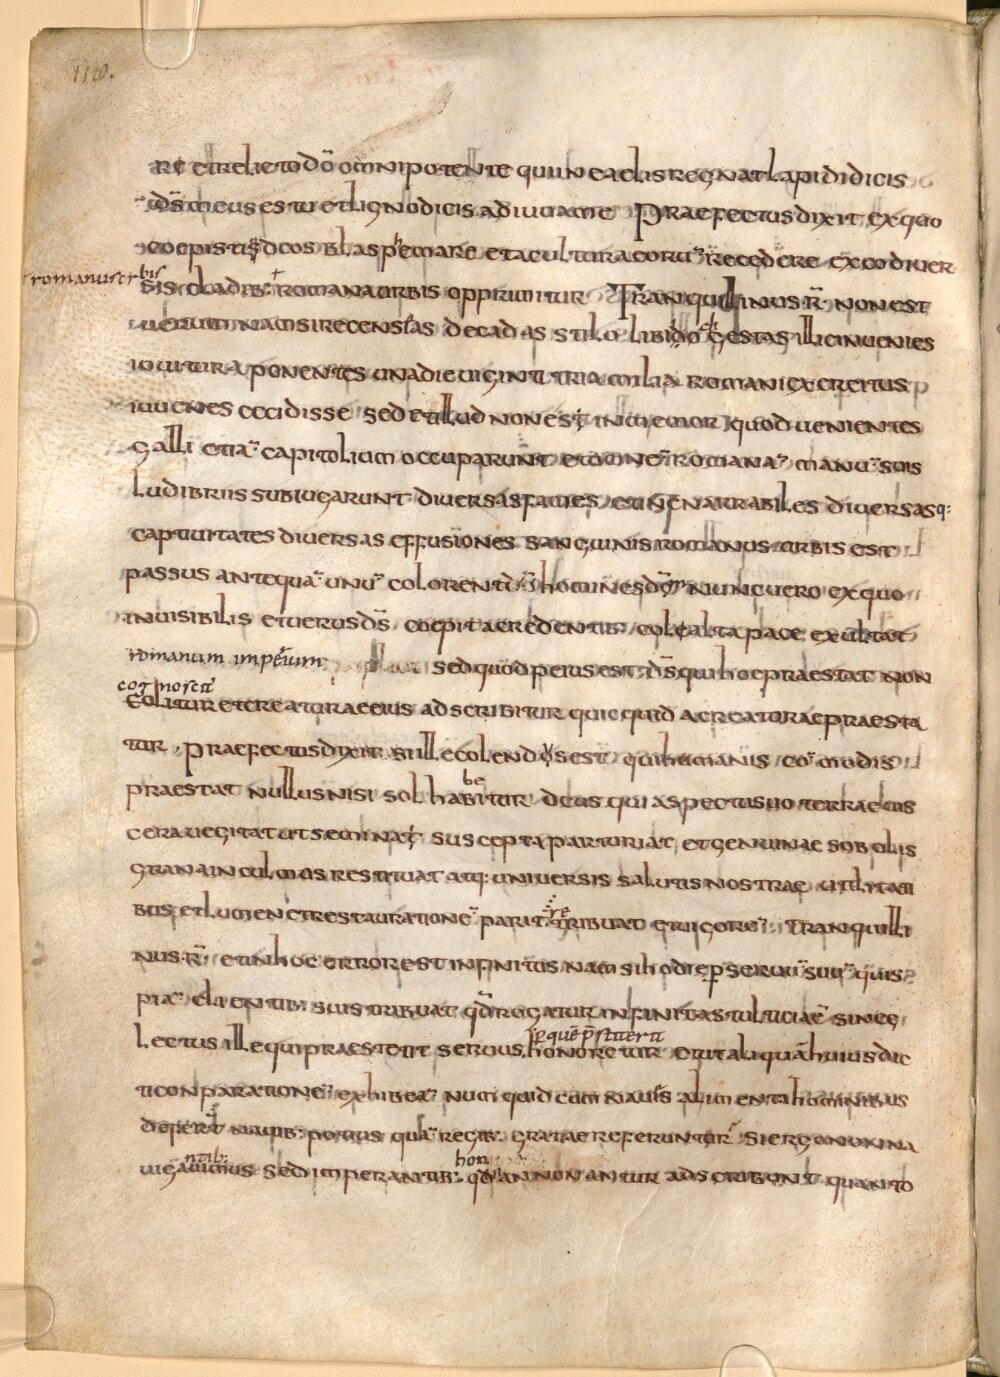 118.
re et relicto dō omnipotente qui in caelis regnat lapidi dicis
ds meus es tu et ligno dicis adiuua me Praefectus dixit ex quo
coepistis deos blasphemare et a cultura eorū recedere ex eo diuer
romanus orbis
sis cladib: romana urbis opprimitur Tranquillinus R̄ non est
uerum nam si recensias decadas stilo libi gestas illic inuenies
ioui tura ponentes una die uiginti tria milia romani exercitus
iuuenes cecidisse sed et illud non est inmemor quod uenientes
galli etiā capitolium occuparunt et omnē romanā manū suis
ludibriis subiugarunt diuersas facies et inenarrabiles diuersasq:
captiuitates diuersas effusiones sanguinis romanus urbis est
passus antequā unū colorent homines dm nunc uero ex quo
inuisibilis et uerus ds coepit a credentib: coli alta pace exultat
romanum imperium sed quod peius est ds qui hoc praestat non
cognoscit
colitur et creaturae eius adscribitur quicquid a creatore praesta
tur, Praefectus dixit Si ille colendus est qui humanis cōmodis
praestat nullus nisi sol habebitur deus qui aspectu suo terrae uis
cera uegitat ut seminat suscepta parturiat et genuinae sobolis
grana in culmos restituat atq: uniuersis salutis nostrae utilitati
bus et lumen et restaurationē pariter tribuat et uigorē: Tranquilli
nus R̄ et in hoc error est infinitus nam si hodie per seruū suū quis
piā clientib: suis tribuat qd rogatur infinita stulticiae sineg
lectus ille qui praestetit seruus honoretur et ut aliquā huius dic
per quē praestiterit
ti conparationē exhibeā numquid cum nauis alimenta hominibus
defert nauib: potius quā regib: gratiae referuntur si ergo non na
uigantib: sed imperantib: qd an non antur adscribunt quanto